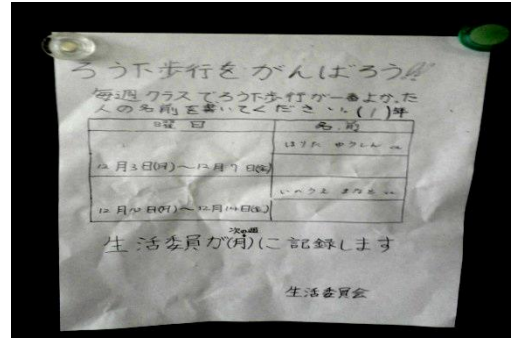 ろう下歩行をがんばろう!!
毎週クラスでろう下歩行が一番よかった
人の名前を書いてください。(1)年
曜日 名前
はりた
12月3日(月)〜12月7日(金)
いのうえ
12月10日(月)〜12月14日(金)
次の週
生活委員が(月)に記録します
生活委員会